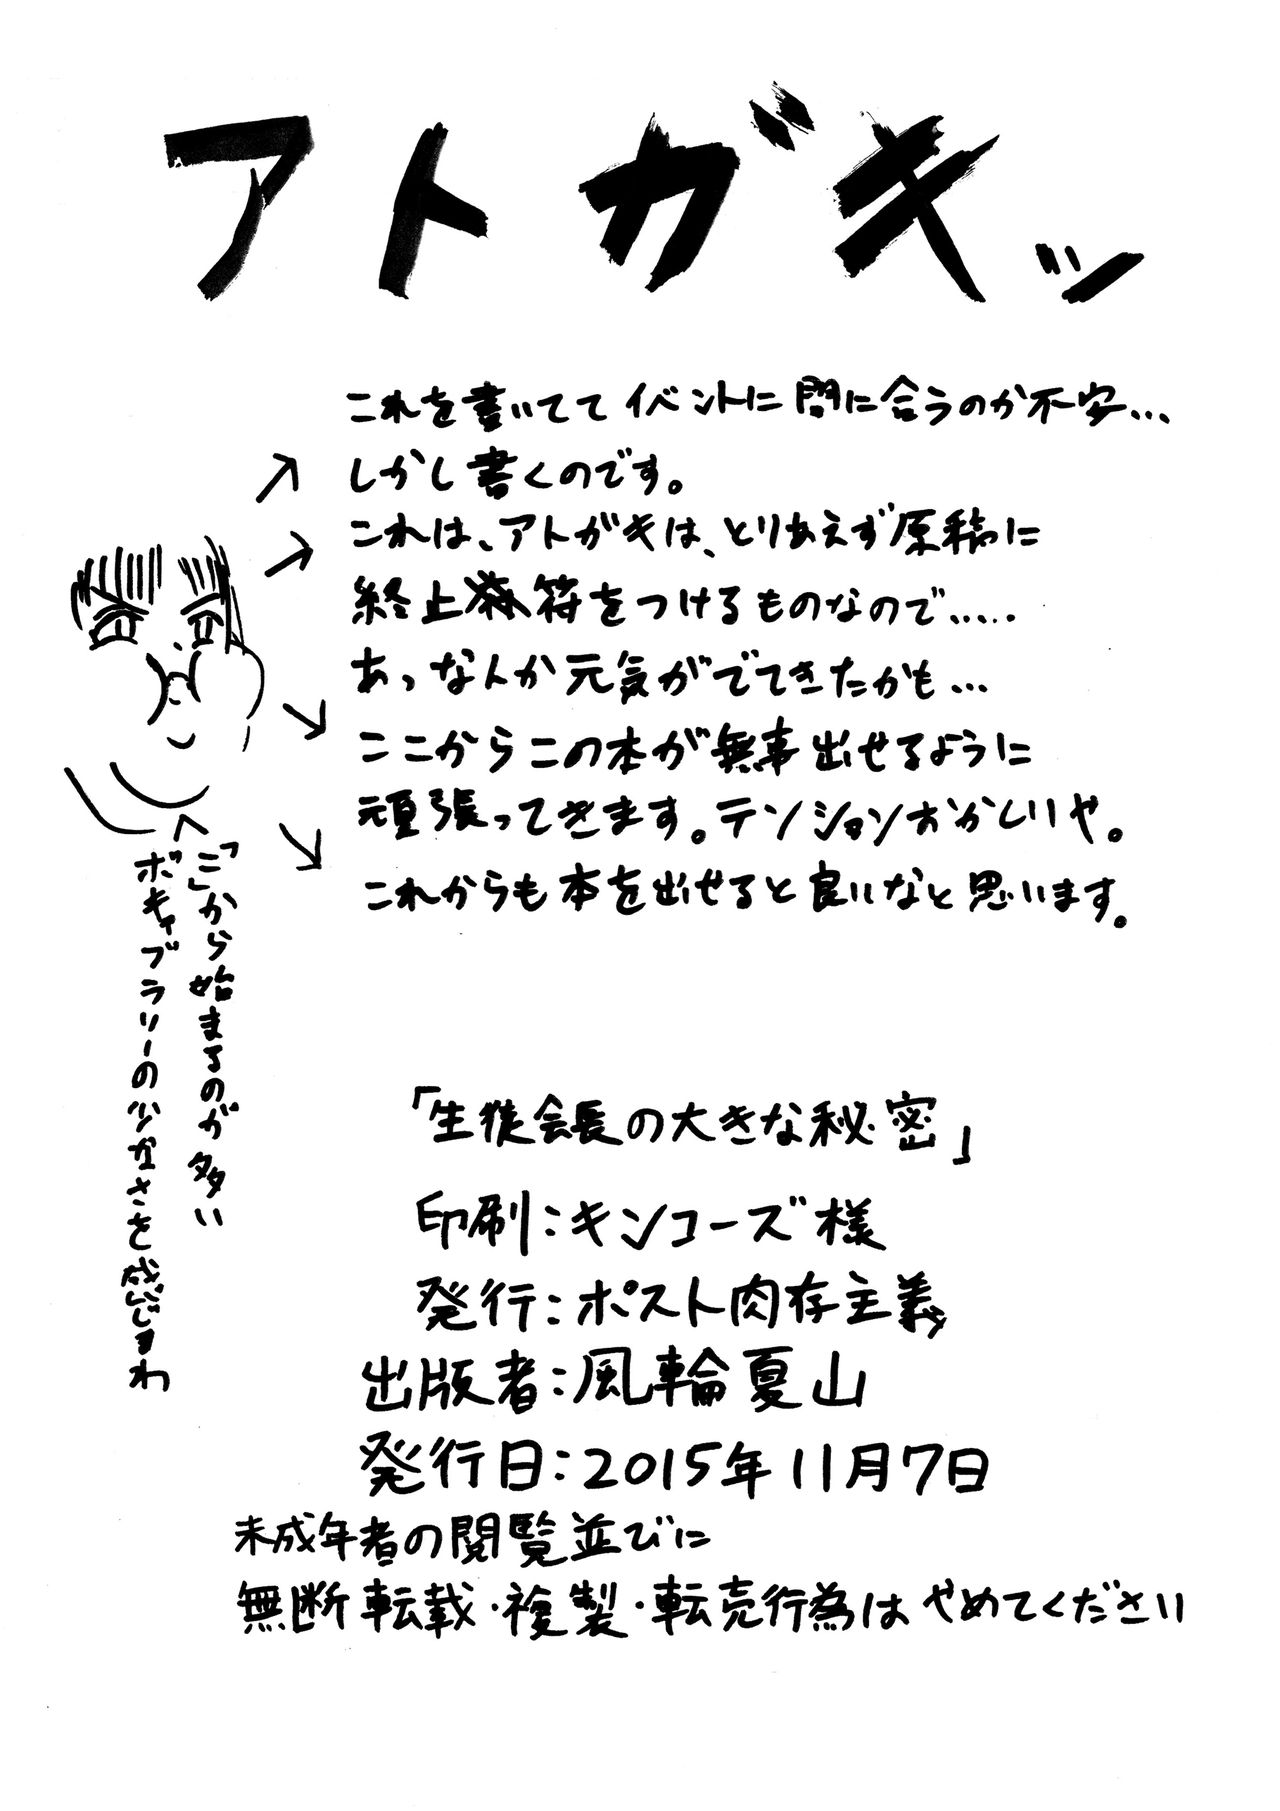 アトガキッ
これを書いててイベントに間に合うのか不安...
しかし書くのです。
これは、アトガキは、とりあえず原稿に
終止符をつけるものなので.....
あっなんか元気がでてきたかも...
ここからこの本が無事出せるように
頑張ってきます。テンションおかしいや。
これからも本を出せると良いなと思います。
「こ」から始まるのが多い
ボキャブラリーの少なさを感じまわ
「生徒会長の大きな秘密」
印刷:キンコーズ様
発行:ポスト肉存主義
出版者:風輪夏山
発行日:2015年11月7日
未成年者の閲覧並びに
無断転載・複製・転売行為はやめてください